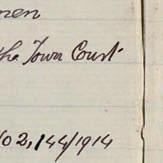 the Town Court
02,144/1914